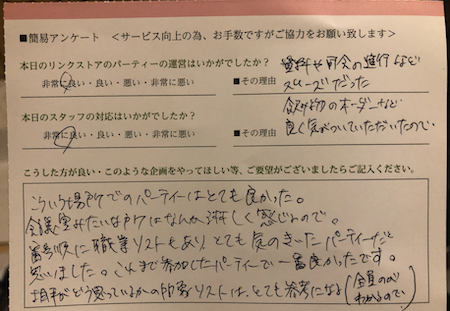 ■簡易アンケート ＜サービス向上の為、お手数ですがご協力をお願い致します＞
本日のリンクストアのパーティーの運営はいかがでしたか？
非常に良い・良い・悪い・非常に悪い
■その理由
資料や司会の進行など
スムーズだった
本日のスタッフの対応はいかがでしたか？
非常に良い・良い・悪い・非常に悪い
■その理由
飲み物のオーダーなど
良く気がついていただいたので。
こうした方が良い・このような企画をやってほしい等、ご要望がございましたらご記入ください。
こういう場所でのパーティーはとても良かった。
会議室みたいな所はなんか淋しく感じるので。
番号順に職業リストもあり、とても気のきいたパーティーだと
思いました。これまで参加したパーティーで一番良かったです。
相手がどう思っているかの リストは、とても参考になる（全員のが
わかるので）